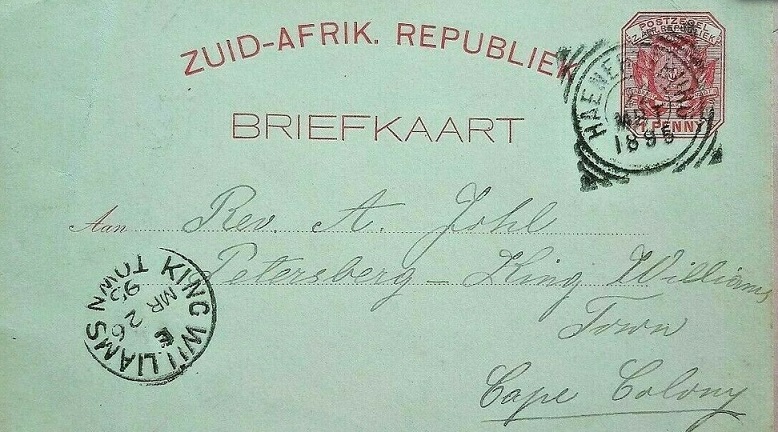 ZUID-AFRIK. REPUBLIEK
POSTZEGEL
Z. AFR. REPUBLIEK
1 PENNY
MRT
1895
BRIEFKAART
Aan Rev. A. Johl
Petersberg – King Williams
Town
Cape Colony
KING WILLIAMS TOWN
E
MR 26
95